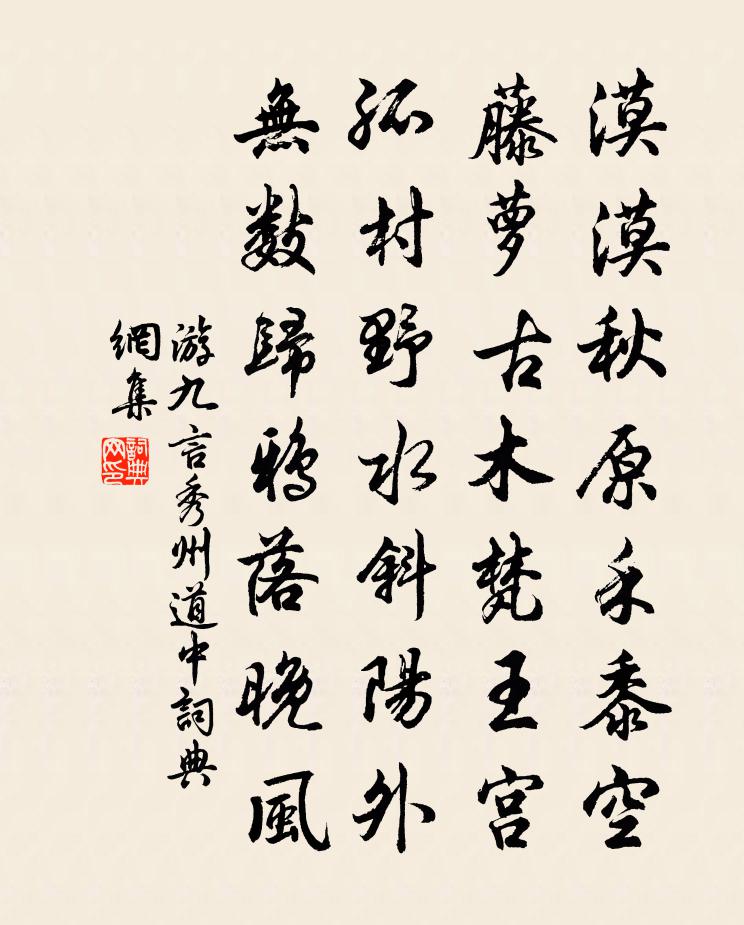 漠漠秋原禾黍空
藤萝古木梵王宫
孤村野水斜陽外
無数歸鸦落晚風
游九言秀州道中詞典
網集
詞典
网印